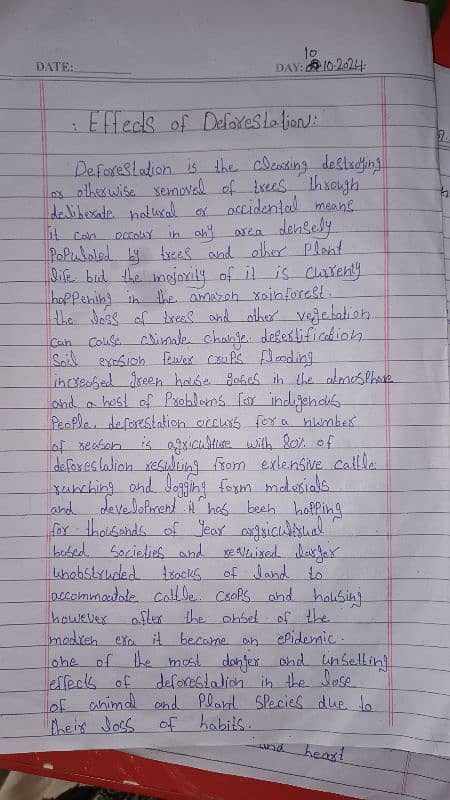 10
DATE: DAY: 10-2024
: Effects of Deforestation:
Deforestation is the clearing destroying
or otherwise removel of trees through
deliberate natural or accidental means
it can occour in any area densely
Populated by trees and other Plant
life but the mejority of it is currenly
happening in the amazon rainforest.
the loss of trees and other vegetation
can cause climate change. desertification
Soil erosion fewer crops flooding
increased green house gases in the atmosphare
and a host of Problams for indigenous
People. deforestation occurs for a number
of reason is agriculture with 80% of
deforestation resulting from extensive cattle.
runching and logging form materials
and development. it has been hopping
for thousands of year argricultural
based societies and required larger
unobstructed tracks of land to
accommodate cattle. crops and housing
however after the onset of the
modren era it became an epidemic.
one of the most danger and unsetling
effects of deforestation in the lose
of animal and Plant species due to
their loss of habits.
and heart